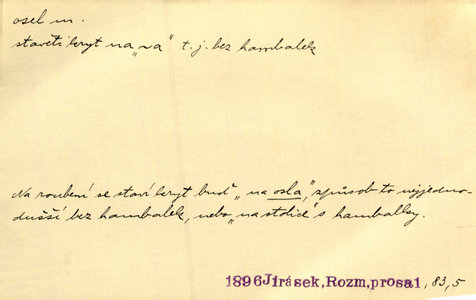 osel m.
stavěti kryt na „va“ t. j. bez hambalek
Na roubení se staví kryt buď „na osla,“ způsob to nejjedno-
dušší bez hambalek, nebo „na stolici“ s hambalky.
1896 Jirásek, Rozm, prosa 1, 83, 5